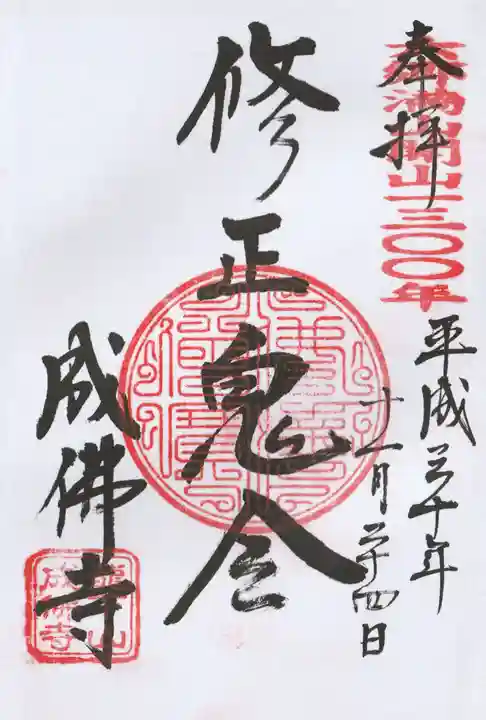 奉拝
六郷満山開山一三〇〇年
平成三十年
十一月二十四日
修正鬼会
成佛寺
成佛寺